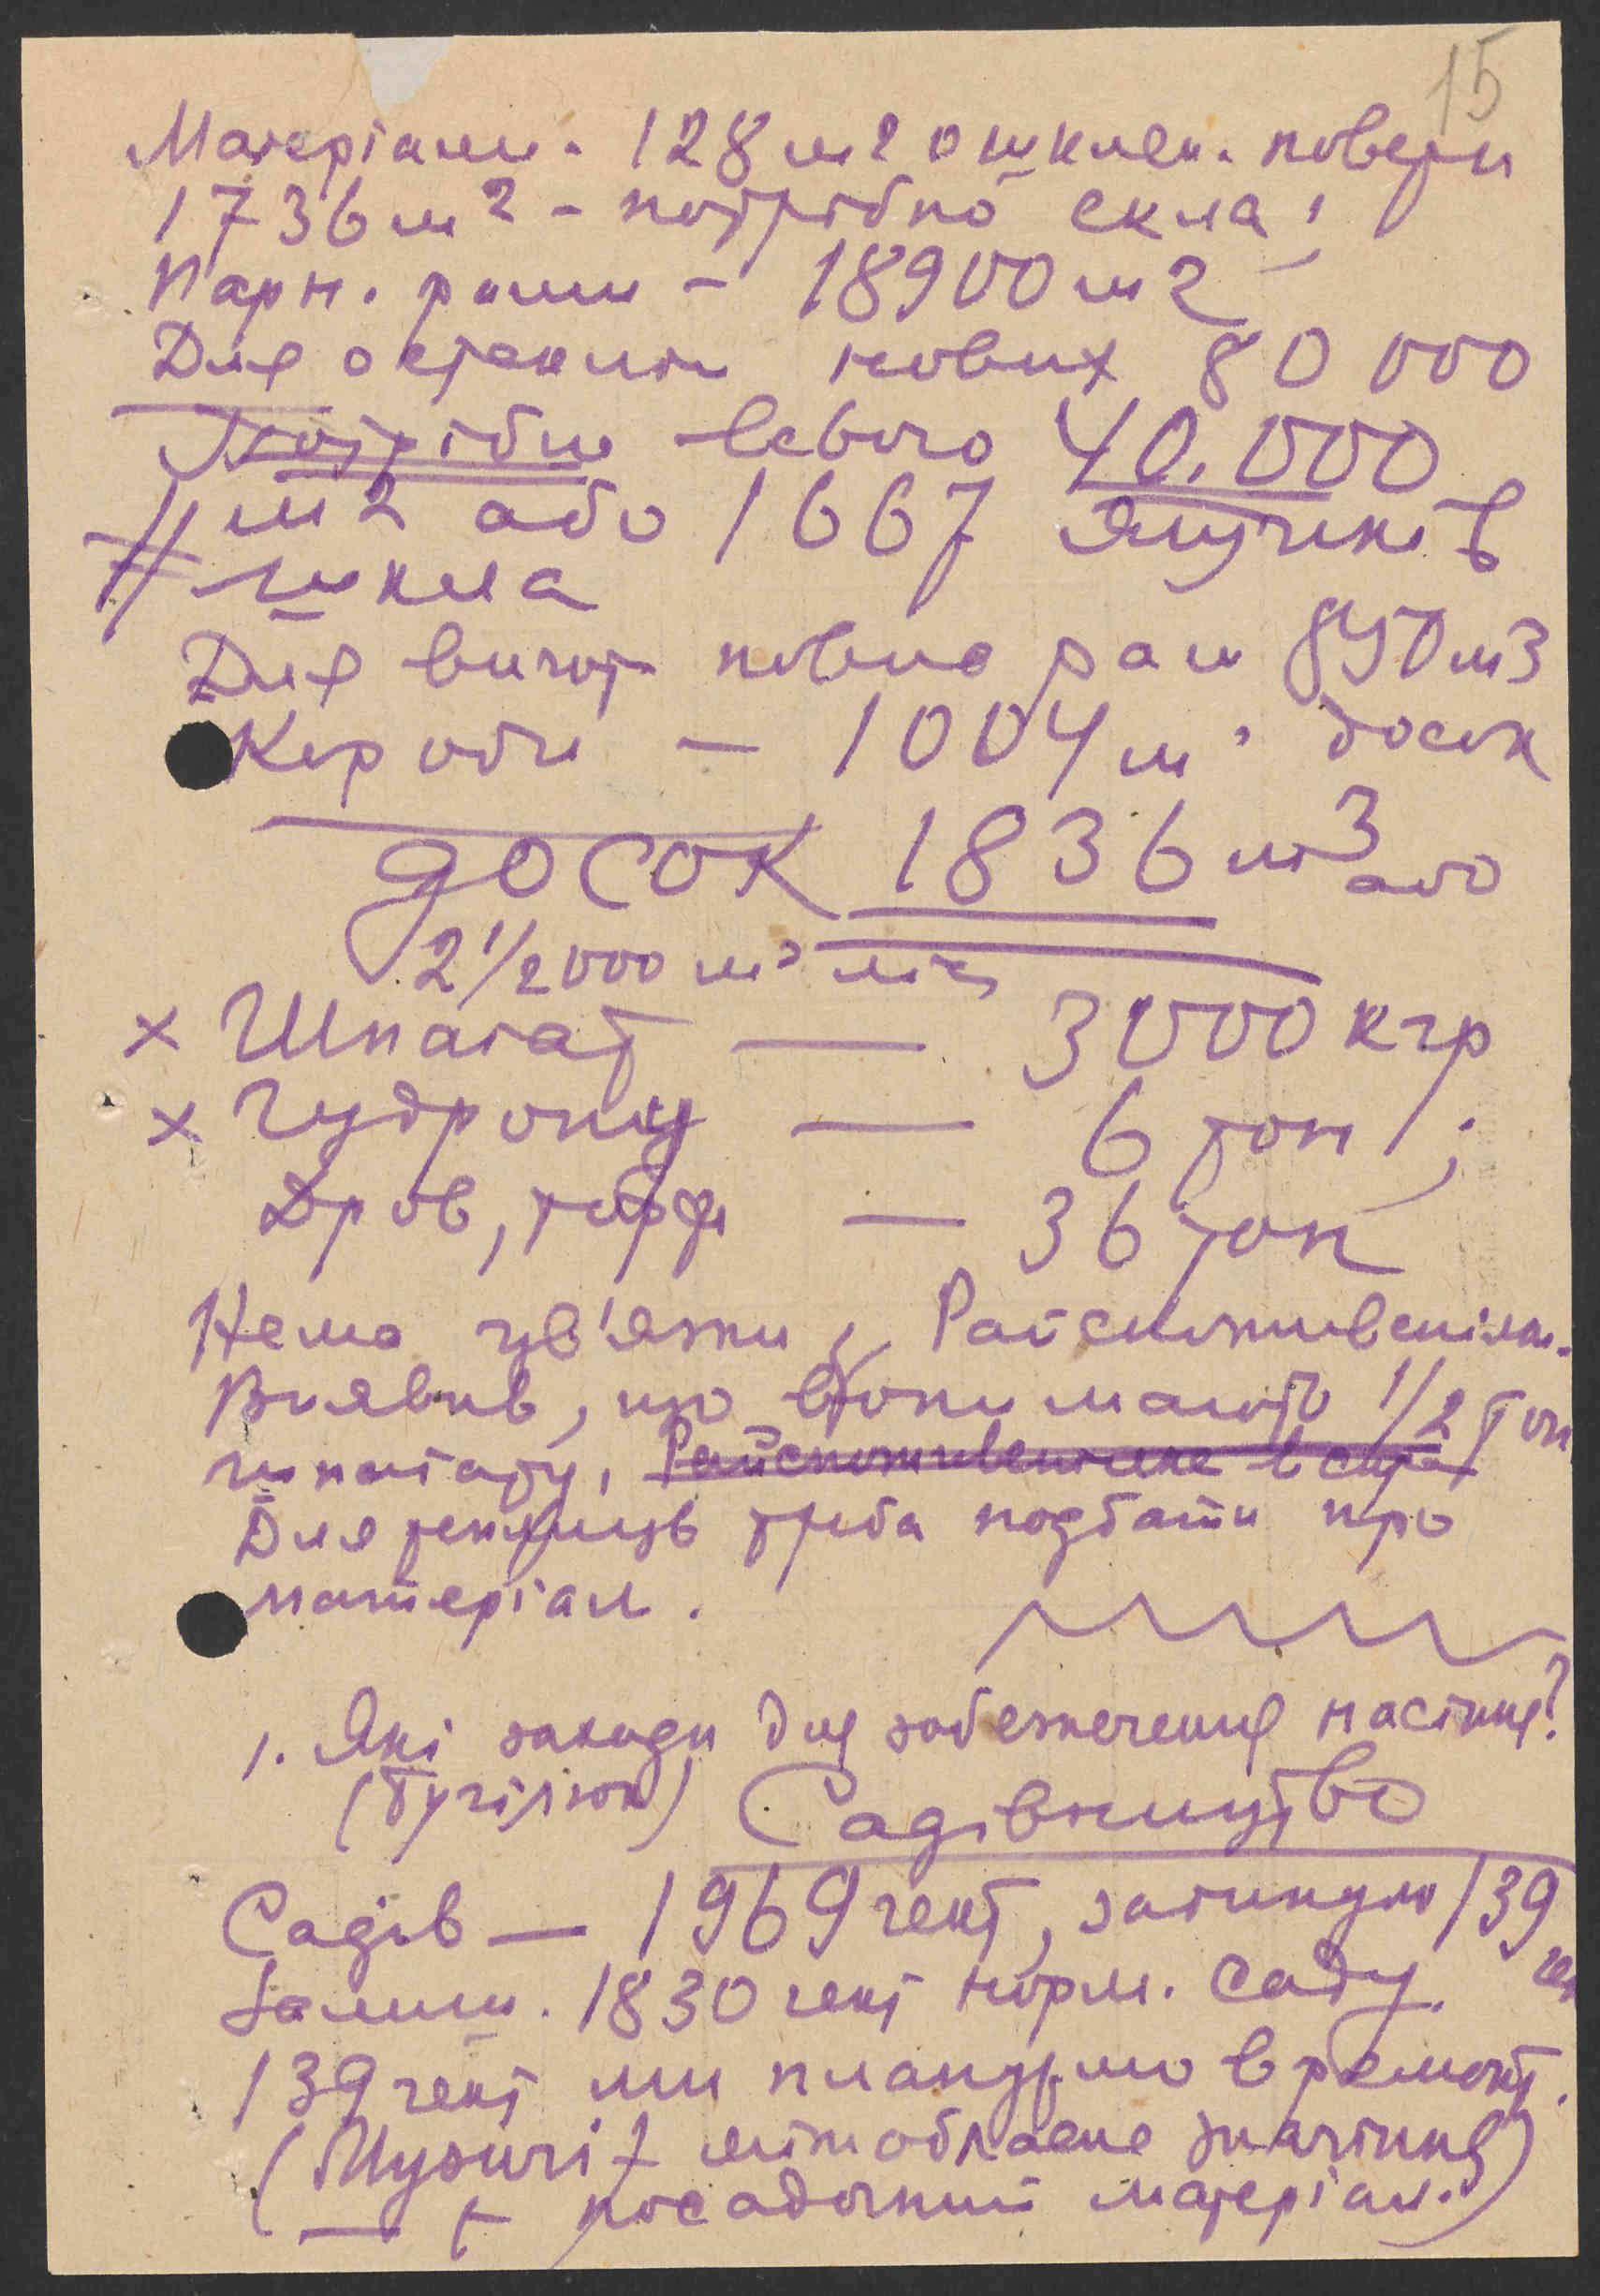 15
Матеріали. 128 м2 ошклен. поверх
1736 м2 - потрібно скла;
Парн. рами - 18900 м2
Для остекл нових 80 000
Потрібно всього 40.000
м2 або 1667 ящиків
шкла
Для вигот. повно рам 850 м3
Короби - 1004 м3 досок
досок 1836 м3 або
2 1/2 000 м3 ліс
х Шпагат — 3000 кгр
х Гудрону — 6 тон;
Дров, торф — 36 тон
Нема ув'язки з Райспоживспілк.
Виявив, що вони мають 1/2 тон
шпагату, Райспоживспілка в
Для треба подбати про
матеріал.
1. Які заходи для забезпечення насіння?
Садівництво
Садів — 1969 гект, загинуло 139 ге
Залиш. 1830 гект норм. саду.
139 гект ми плануємо в ремонт.
(Музичі + значіння)
— + посадочний матеріал.)